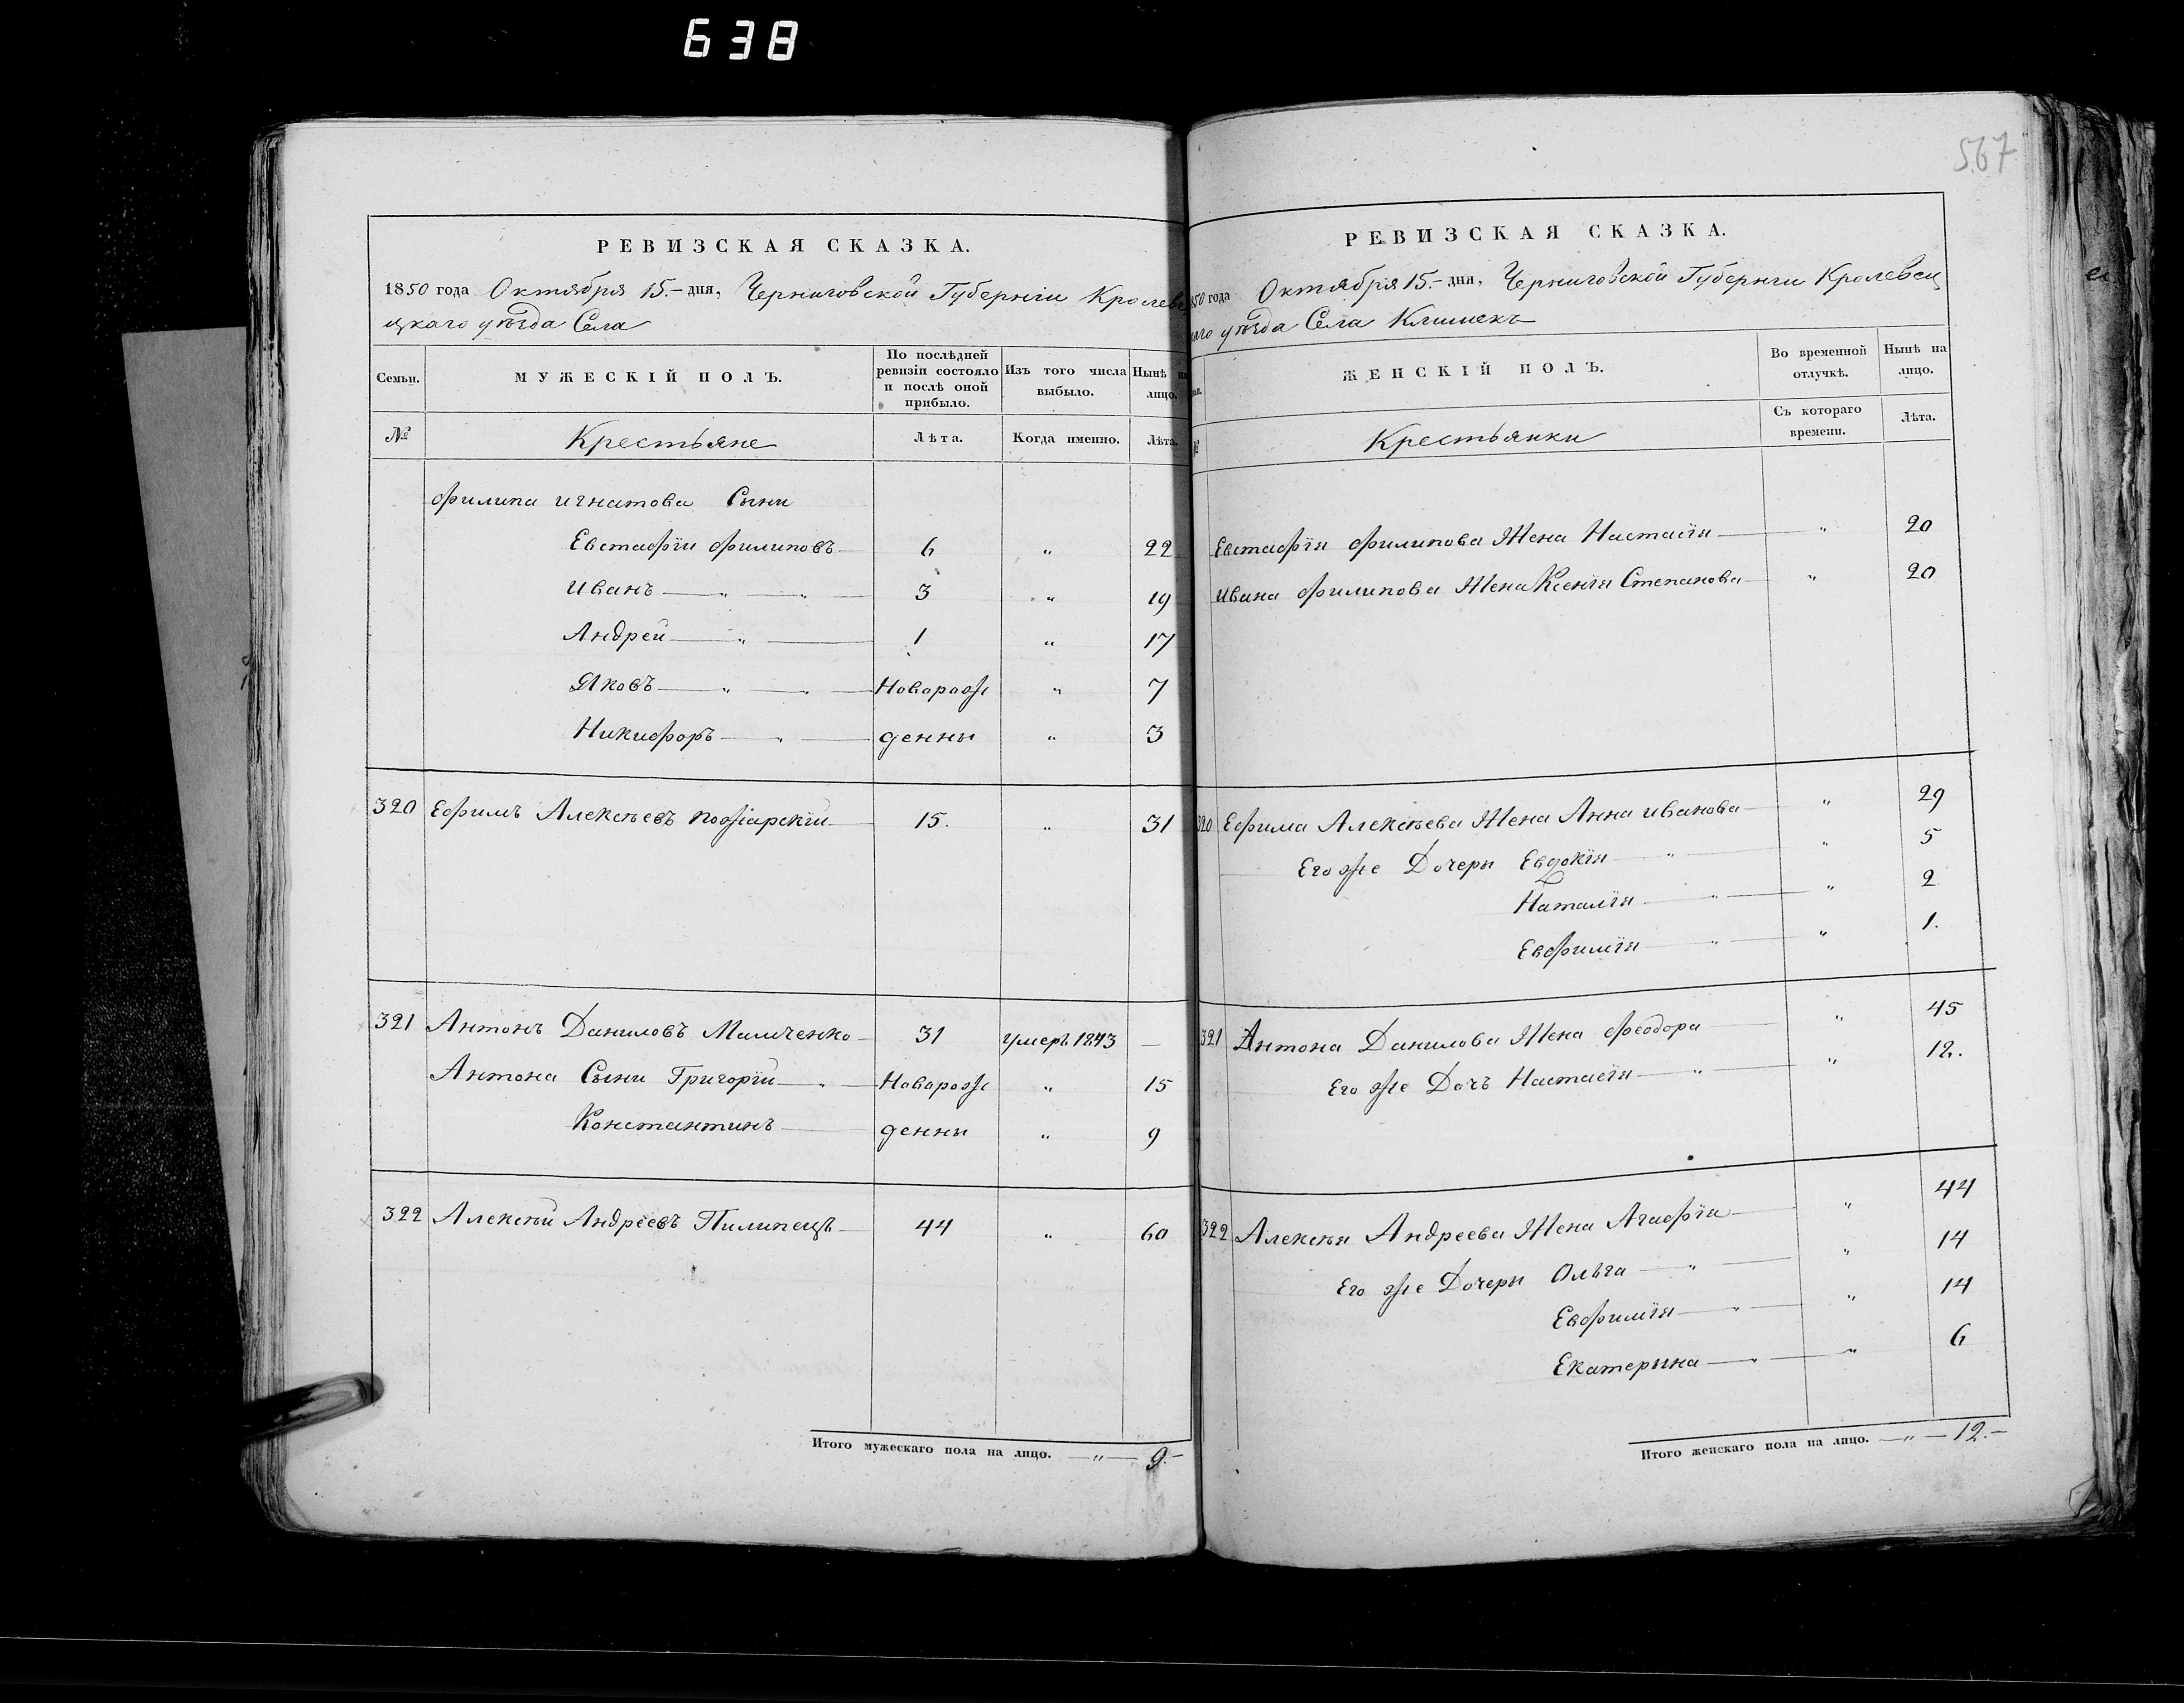 638
567
РЕВИЗСКАЯ СКАЗКА.
1850 года Октября 15.- дня, Черниговской Губерніи Кролеве
цкаго уѣзда Села
Семьи.
МУЖЕСКІЙ ПОЛЪ.
По послѣдней ревизіи состояло и послѣ оной прибыло.
Изъ того числа выбыло.
Нынѣ на лицо.
№
Крестьяне
Лѣта.
Когда именно.
Лѣта.
Филипа Игнатова Сыны
Евстафій Филиповъ 6 " 22
Иванъ — " — " 3 " 19
Андрей — " — 1 " 17
Яковъ — " — " — Новарож " 7
Никифоръ — " — денны " 3
320 Ефимъ Алексѣевъ Пожарскій 15. " 31
321 Антонъ Даниловъ Малченко 31 умеръ 1843 —
Антона Сыны Григорій — " — Новарож " 15
Константинъ — денны " 9
322 Алексѣй Андреевъ Пилипецъ 44 " 60
Итого мужескаго пола на лицо. — " — 9.-
РЕВИЗСКАЯ СКАЗКА.
850 года Октября 15.- дня, Черниговской Губерніи Кролевец
каго уѣзда Села Клишекъ
ЖЕНСКІЙ ПОЛЪ.
Во временной отлучкѣ.
Нынѣ на лицо.
№
Крестьянки
Съ котораго времени.
Лѣта.
Евстафія Филипова Жена Настасія — " 20
Ивана Филипова Жена Ксенія Степанова — " 20
320 Ефима Алексѣева Жена Анна Иванова — " 29
Его же Дочери Евдокія — " — " 5
Наталія — " — " 2
Евфимія — " — " 1.
321 Антона Данилова Жена Феодора — " 45
Его же Дочъ Настасія — " — " 12.
322 Алексѣя Андреева Жена Агафія — " 44
Его же Дочери Ольга — " — " 14
Евфимія — " — " 14
Екатерына — " — " 6
Итого женскаго пола на лицо. — " — 12.-